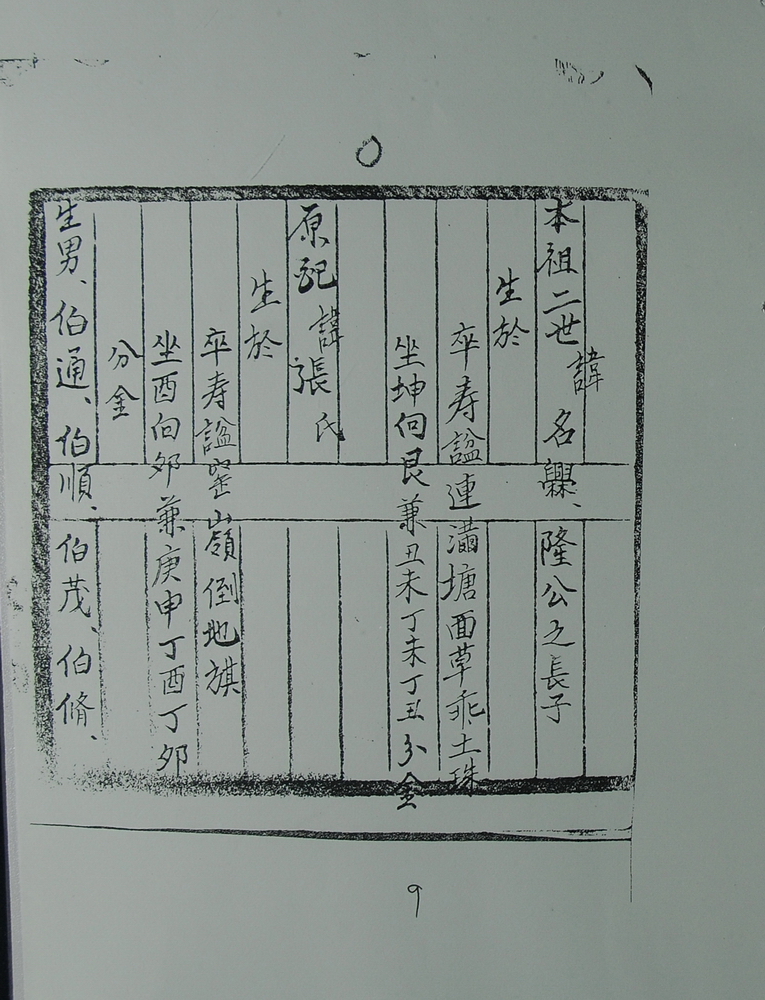 本祖二世諱名爵、隆公之長子
生於
卒寿諡連滿塘面草乖土珠
坐坤向艮兼丑未丁未丁丑分金
原記諱張氏
生於
卒寿諡嶺倒地旗
坐酉向夘兼庚申丁酉丁夘
分金
生男、伯通、伯順、伯茂、伯脩、
9